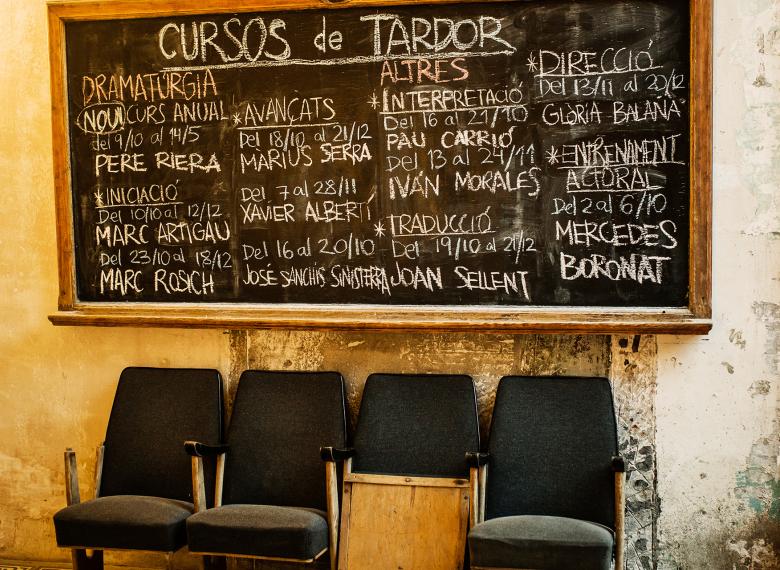 CURSOS de TARDOR
DRAMATÚRGIA
NOU CURS ANUAL
del 9/10 al 14/5
PERE RIERA
*INICIACIÓ
Del 10/10 al 12/12
MARC ARTIGAU
Del 23/10 al 18/12
MARC ROSICH
*AVANÇATS
Del 18/10 al 21/12
MÀRIUS SERRA
Del 7 al 28/11
XAVIER ALBERTÍ
Del 16 al 20/10
JOSÉ SANCHIS SINISTERRA
ALTRES
*INTERPRETACIÓ
Del 16 al 27/10
PAU CARRIÓ
Del 13 al 24/11
IVÁN MORALES
*TRADUCCIÓ
Del 19/10 al 21/12
JOAN SELLENT
*DIRECCIÓ
Del 13/11 al 20/12
GLÒRIA BALAÑÀ
*ENTRENAMENT
ACTORAL
Del 2 al 6/10
MERCEDES
BORONAT